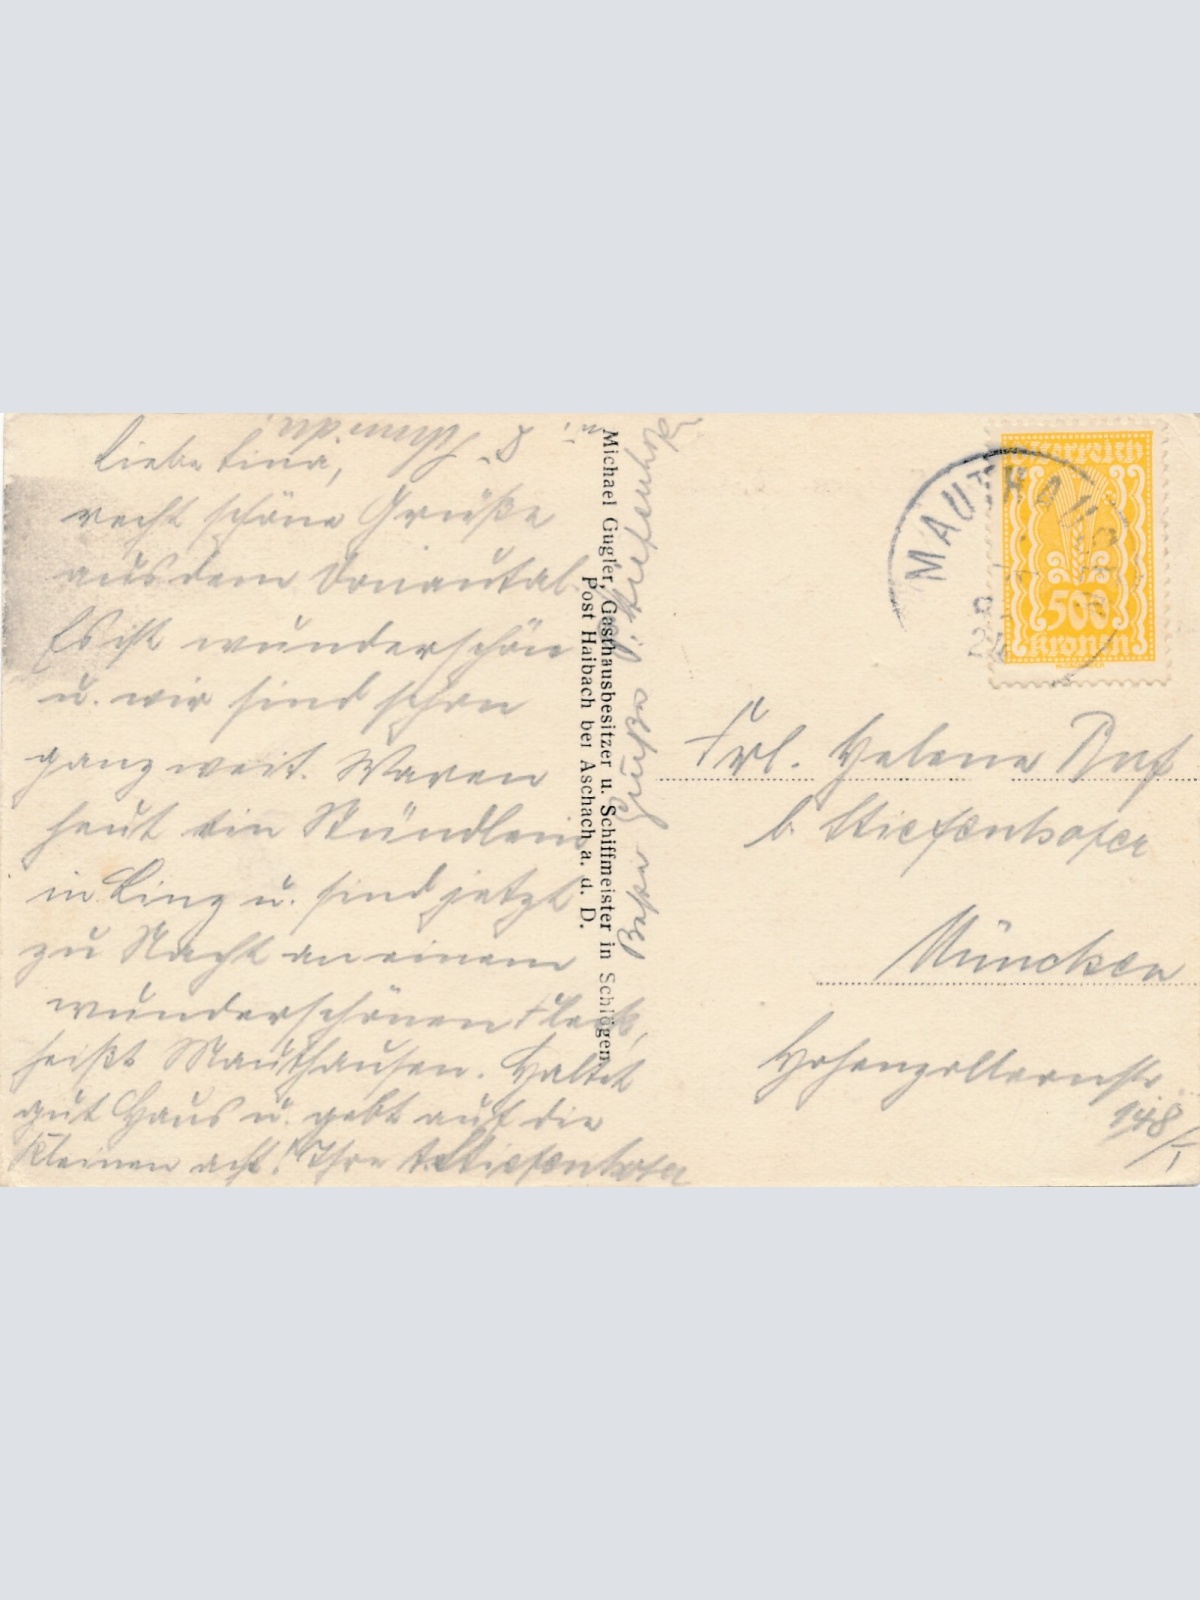 Liebe Lina,
recht schöne Grüße
aus dem Donautal.
Es ist wunderschön
u. wir sind schon
ganz weit. Waren
heut ein Stündlein
in Linz u. sind jetzt
zu Nacht an einem
wunderschönen Fleck,
heißt Mauthausen. Haltet
gut Haus u. gebt auf die
Kleinen acht! Ihre A. Stiefenhofer
Michael Gugler, Gasthausbesitzer u. Schiffmeister in Schlögen
Post Haibach bei Aschach a. d. D.
Beste Grüße Stiefenhofer
MAUTHAUSEN
24
Österreich
500
Kronen
Frl. Helene
b. Stiefenhofer
München
Hohenzollernstr.
148/I